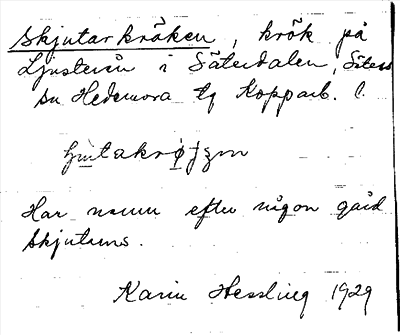 Skjutarkröken, krök på
Ljusterån i Säterdalen, Säters
sn Hedemora tg Kopparb. l.
Har namn efter någon gård
Skjutarns.
Karin Hessling 1929